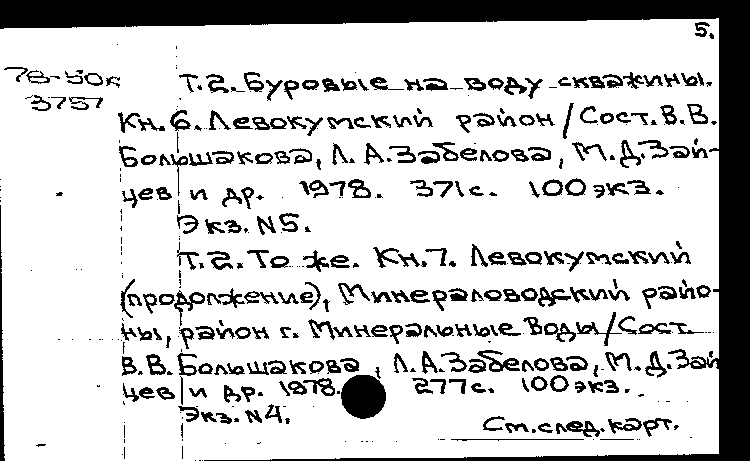 5.
78-50к
3757
Т.2. Буровые на воду скважины.
Кн.6. Левокумский район/Сост. В.В.
Большакова, Л.А.Забелова, М.Д.Зай-
цев и др. 1978. 371с. 100 экз.
Экз. N5.
Т.2. То же. Кн.7. Левокумский
(продолжение), Минераловодский райо-
ны, район г. Минеральные Воды/Сост.
В.В. Большакова, Л.А.Забелова, М.Д.Зай
цев и др. 1978. 277с. 100 экз.
Экз. N4.
См.след.карт.